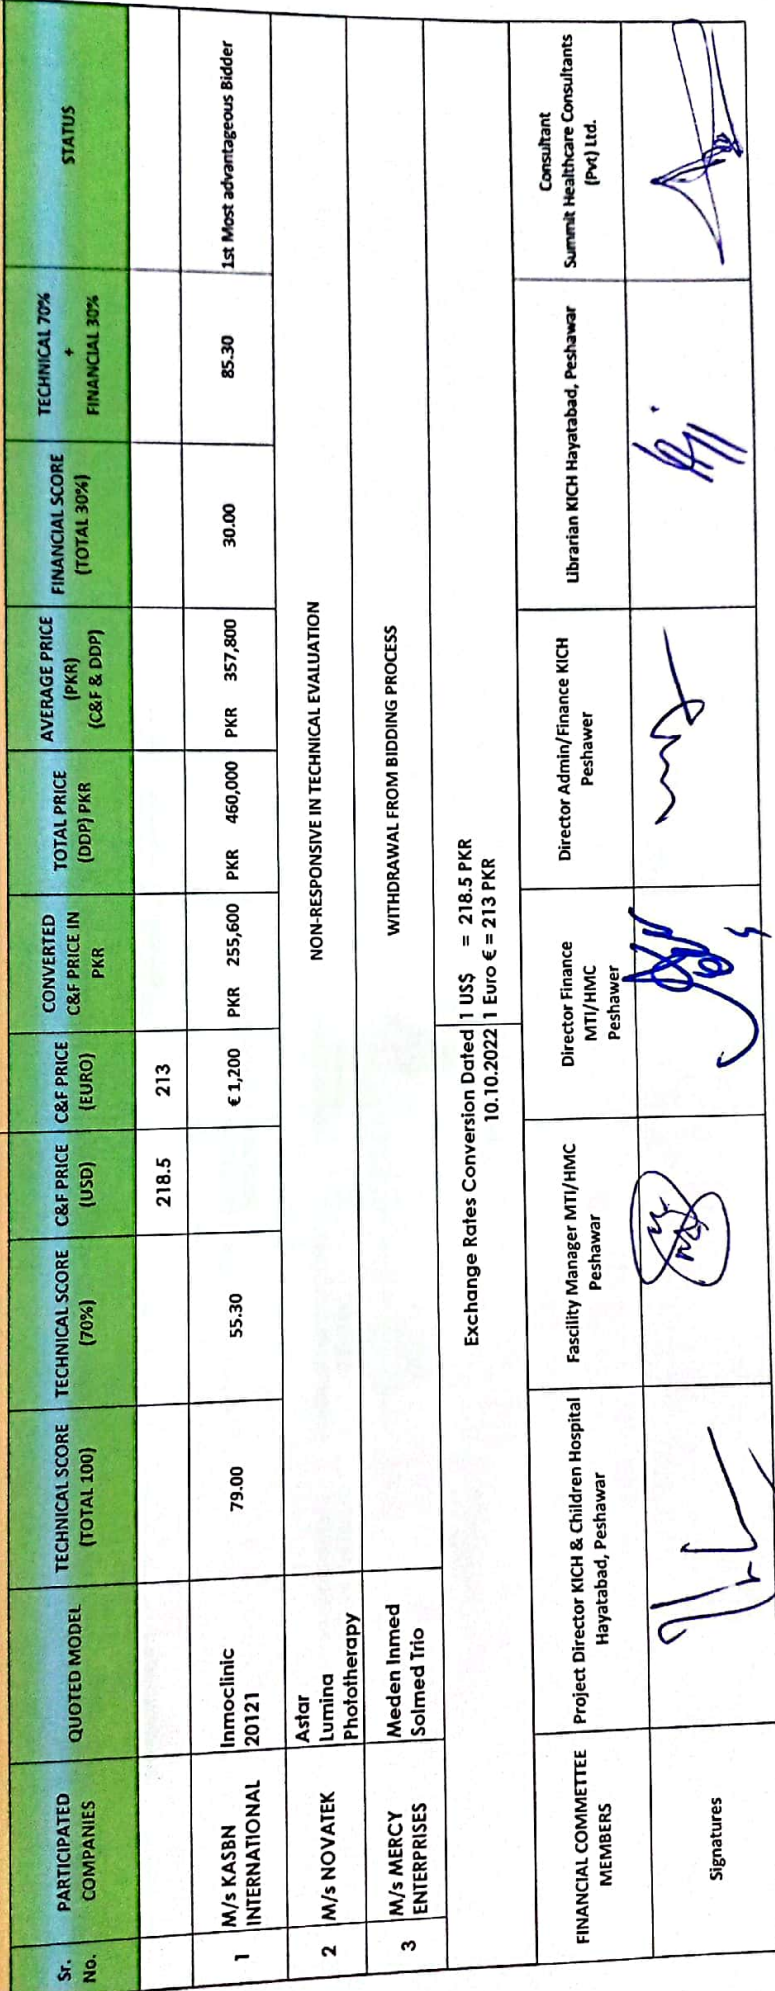 Sr.
No.
PARTICIPATED
COMPANIES
QUOTED MODEL
TECHNICAL SCORE
(TOTAL 100)
TECHNICAL SCORE
(70%)
C&F PRICE
(USD)
C&F PRICE
(EURO)
CONVERTED
C&F PRICE IN
PKR
TOTAL PRICE
(DDP) PKR
AVERAGE PRICE
(PKR)
(C&F & DDP)
FINANCIAL SCORE
(TOTAL 30%)
TECHNICAL 70%
+
FINANCIAL 30%
STATUS
218.5
213
1
M/s KASBN
INTERNATIONAL
Inmoclinic
20121
79.00
55.30
€ 1,200
PKR 255,600
PKR 460,000
PKR 357,800
30.00
85.30
1st Most advantageous Bidder
2
M/s NOVATEK
Astar
Lumina
Phototherapy
NON-RESPONSIVE IN TECHNICAL EVALUATION
3
M/s MERCY
ENTERPRISES
Meden Inmed
Solmed Trio
WITHDRAWAL FROM BIDDING PROCESS
Exchange Rates Conversion Dated
10.10.2022
1 US$ = 218.5 PKR
1 Euro € = 213 PKR
FINANCIAL COMMETTEE
MEMBERS
Project Director KICH & Children Hospital
Hayatabad, Peshawar
Fascility Manager MTI/HMC
Peshawar
Director Finance
MTI/HMC
Peshawer
Director Admin/Finance KICH
Peshawer
Librarian KICH Hayatabad, Peshawar
Consultant
Summit Healthcare Consultants
(Pvt) Ltd.
Signatures